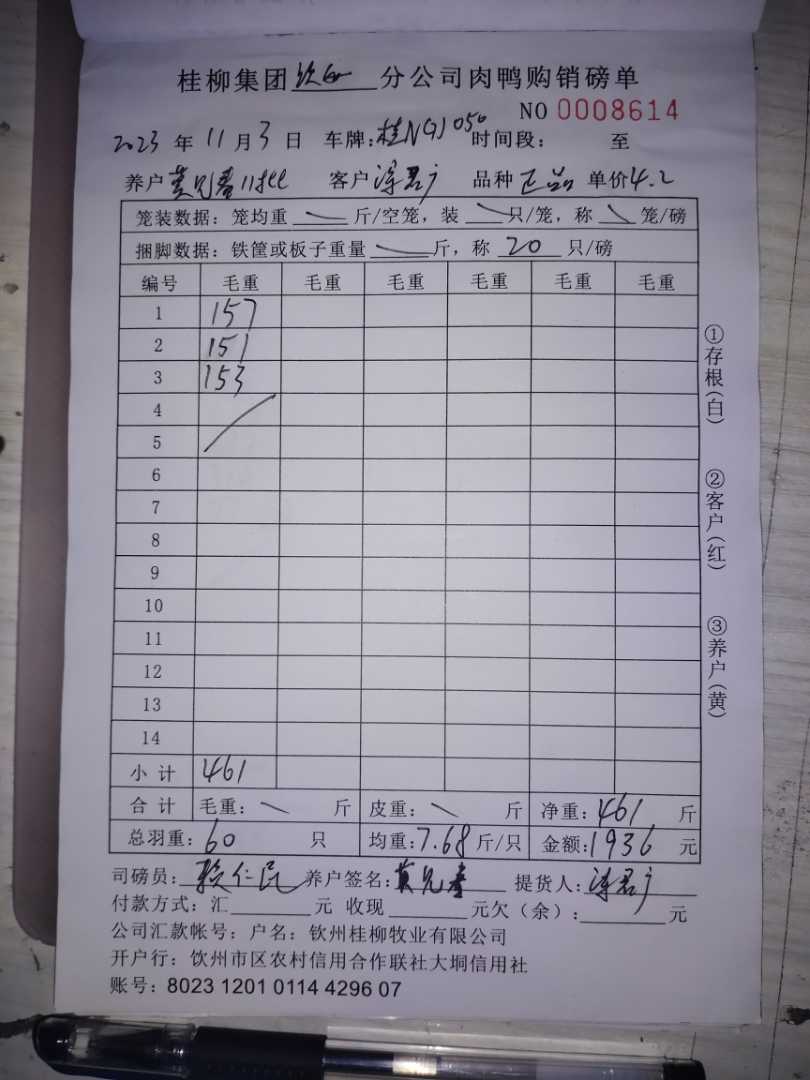 桂柳集团钦州分公司肉鸭购销磅单
NO 0008614
2023 年 11 月 3 日 车牌: 桂N 050 时间段: 至
养户 黄兄春 客户 涂君广 品种 正品 单价 4.2
笼装数据: 笼均重 斤/空笼, 装 只/笼, 称 笼/磅
捆脚数据: 铁筐或板子重量 斤, 称 20 只/磅
编号 毛重 毛重 毛重 毛重 毛重 毛重
1 157
2 151
3 153
4
5
6
7
8
9
10
11
12
13
14
小 计 461
合 计 毛重: 斤 皮重: 斤 净重: 461 斤
总羽重: 60 只 均重: 7.68 斤/只 金额: 1936 元
司磅员: 养户签名: 黄兄春 提货人: 涂君广
付款方式: 汇 元 收现 元欠(余): 元
公司汇款帐号: 户名: 钦州桂柳牧业有限公司
开户行: 饮州市区农村信用合作联社大垌信用社
账号: 8023 1201 0114 4296 07
①存根(白)
②客户(红)
③养户(黄)